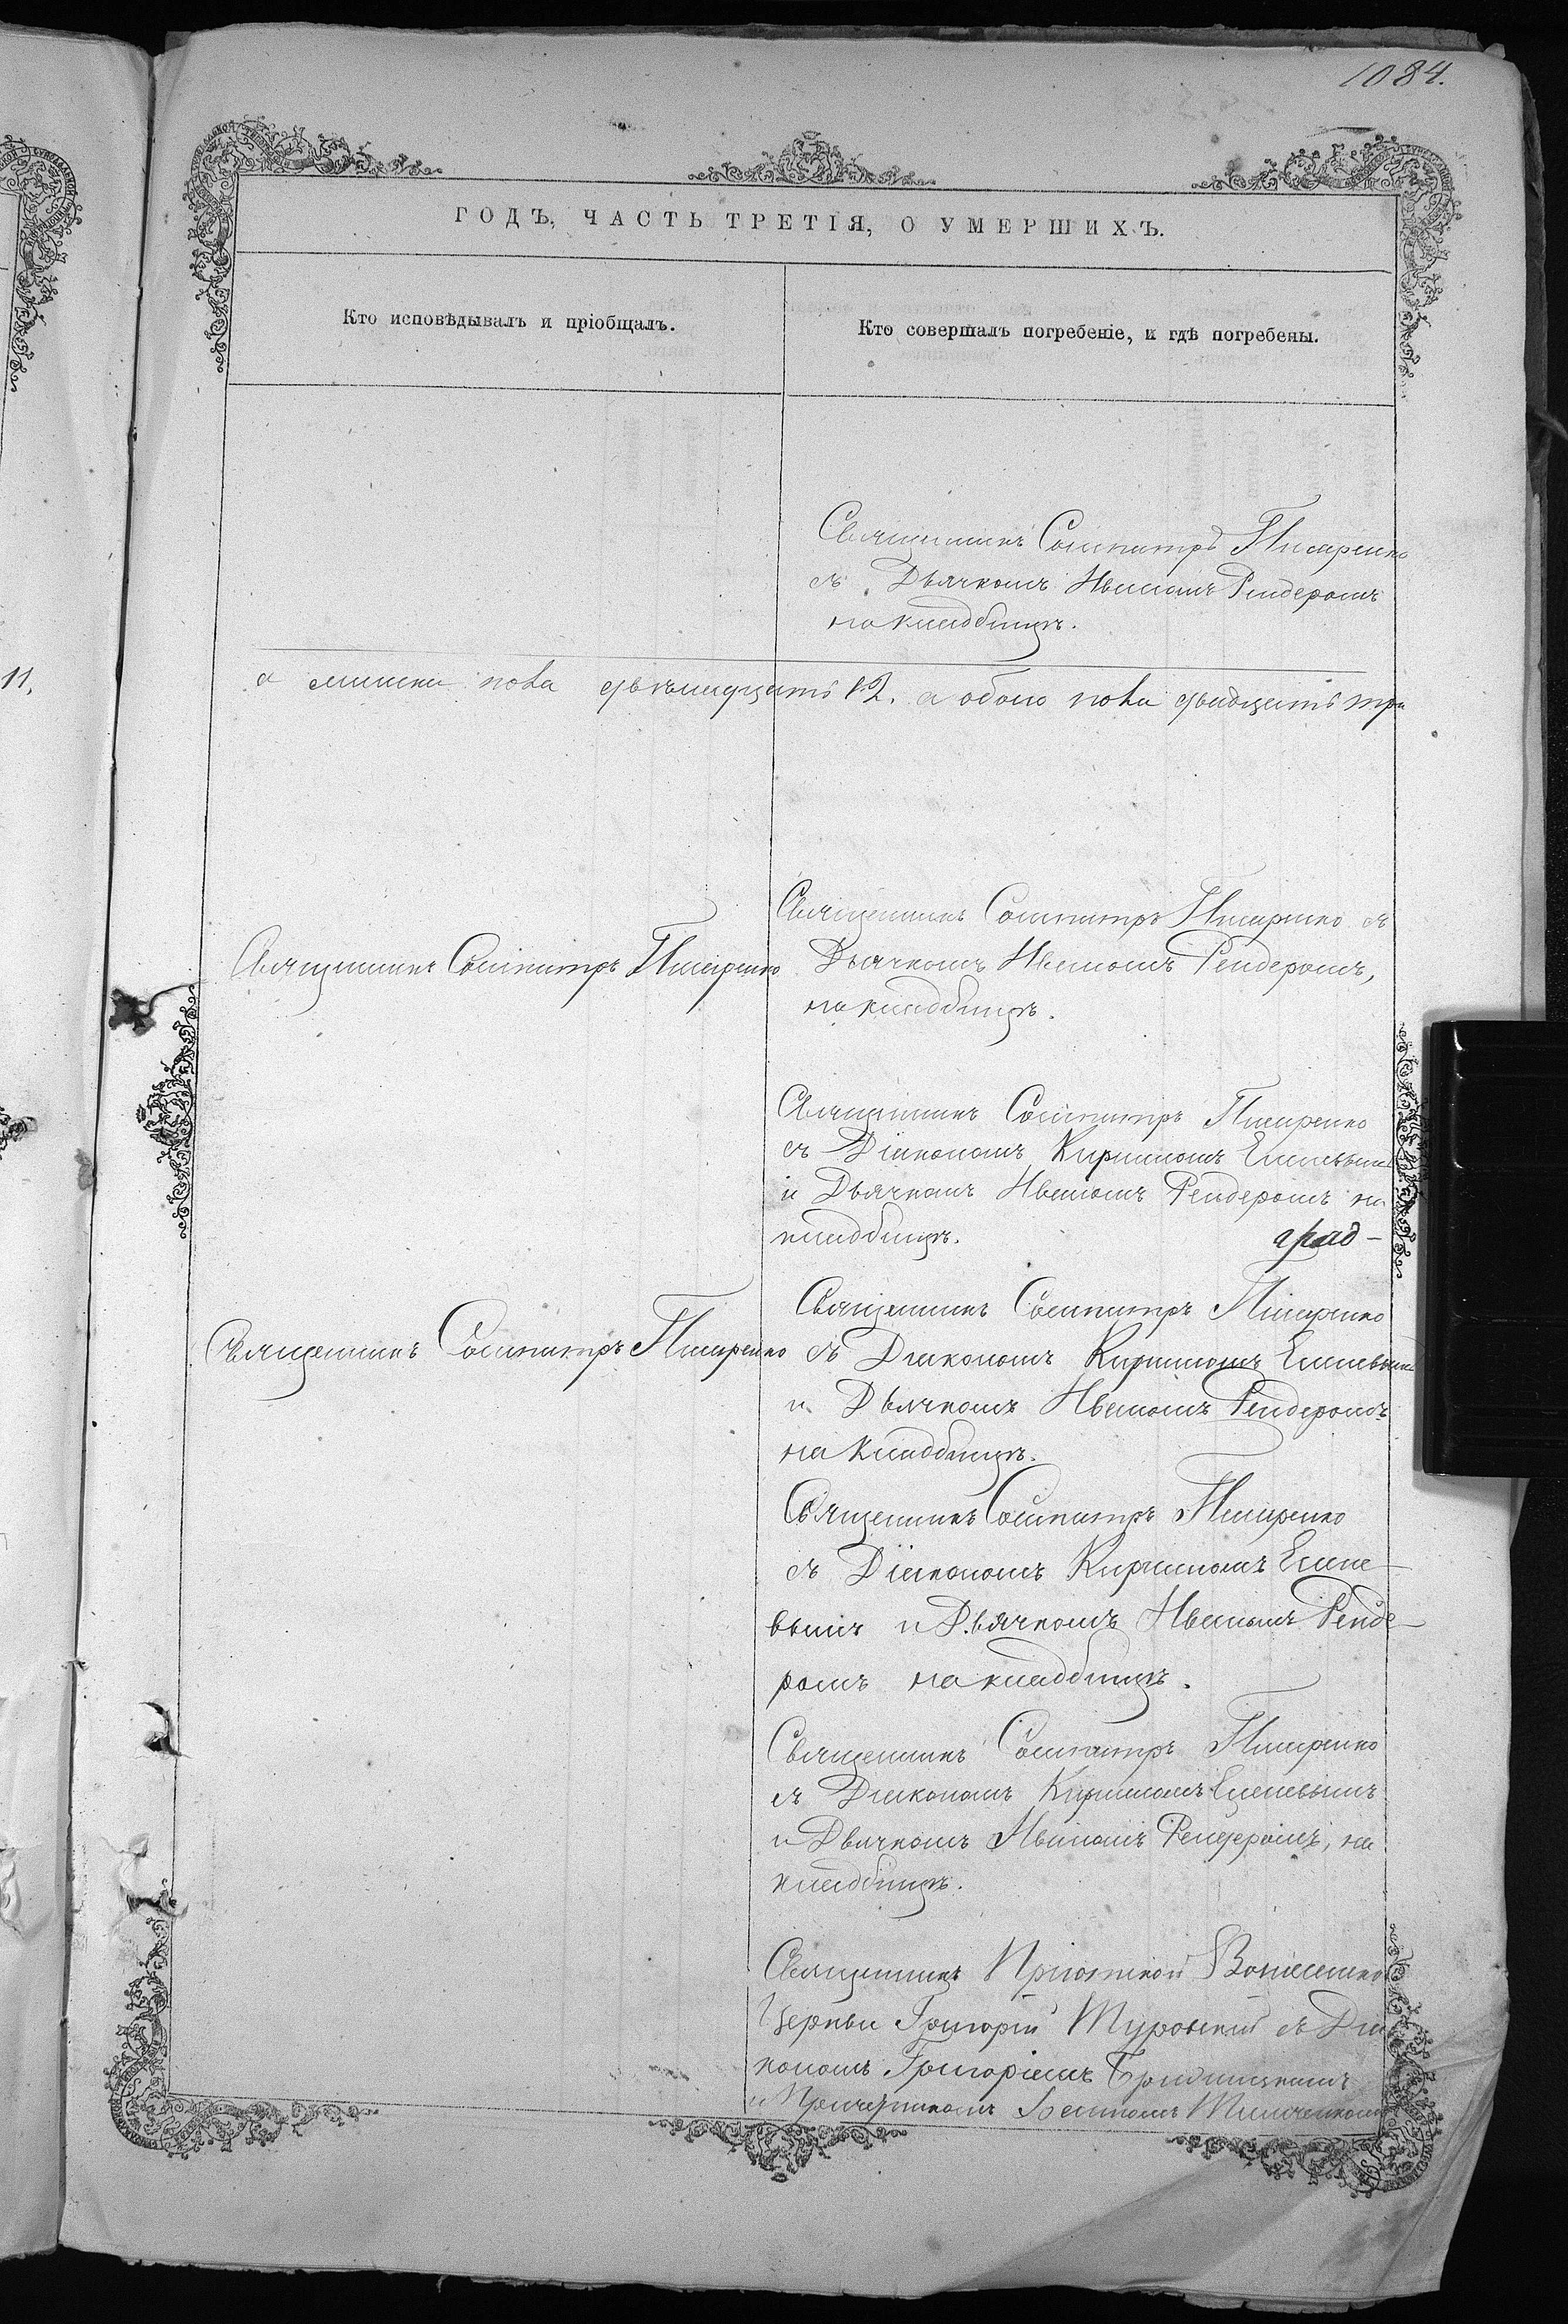 1084.
ГОДЪ, ЧАСТЬ ТРЕТІЯ, О УМЕРШИХЪ.
Кто исповѣдывалъ и пріобщалъ.
Кто совершалъ погребеніе, и гдѣ погребены.
Священникъ Сосипатръ Писаренко
съ Дьячкомъ Иваномъ Рендеромъ
на кладбищѣ.
11.
а женска пола двѣнадцать 12. а обоего пола двадцать три
Священникъ Сосипатръ Писаренко съ
Священникъ Сосипатръ Писаренко
Дьячкомъ Иваномъ Рендеромъ,
на кладбищѣ.
Священникъ Сосипатръ Писаренко
съ Діакономъ Кириломъ
и Дьячкомъ Иваномъ Рендеромъ на
кладбищѣ.
Священникъ Сосипатръ Писаренко
Священникъ Сосипатръ Писаренко
съ Діакономъ Кириломъ
и Дьячкомъ Иваномъ Рендеромъ
на кладбищѣ.
Священникъ Сосипатръ Писаренко
съ Діакономъ Кириломъ
вымъ и Дьячкомъ Иваномъ Ренде-
ромъ на кладбищѣ.
Священникъ Сосипатръ Писаренко
съ Діакономъ Кириломъ
и Дьячкомъ Иваномъ Рендеромъ, на
кладбищѣ.
Священникъ
Церкви Григорій Туровскій съ Діа
кономъ Григоріемъ
и